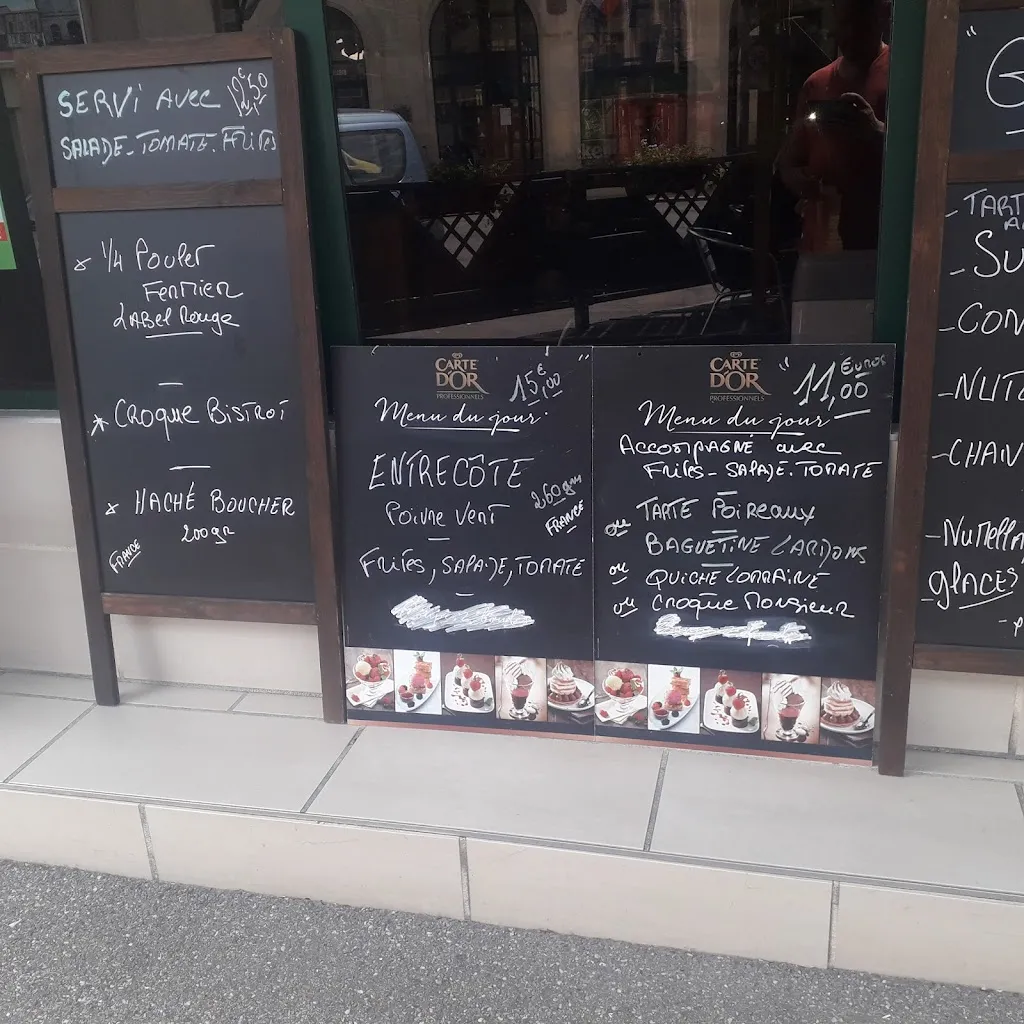 SERVI AVEC 12€50
SALADE_TOMATE.FRITES
1/4 POULET
FERMIER
LABEL ROUGE
CROQUE BISTROT
HACHÉ BOUCHER
200gr
FRANCE
CARTE
D'OR
PROFESSIONNELS
15€,00
Menu du jour
ENTRECÔTE
260gm
POIVRE VERT
FRANCE
FRITES, SALADE, TOMATE
CARTE
D'OR
PROFESSIONNELS
" 11,00 EUROS
Menu du jour
ACCOMPAGNÉ AVEC
FRITES_SALADE.TOMATE
ou TARTE POIREAUX
BAGUETINE LARDONS
ou QUICHE LORRAINE
ou CROQUE MONSIEUR
"G
-TART
-SU
-CON
-NUT
-CHAN
-NUTELLA
GLACES